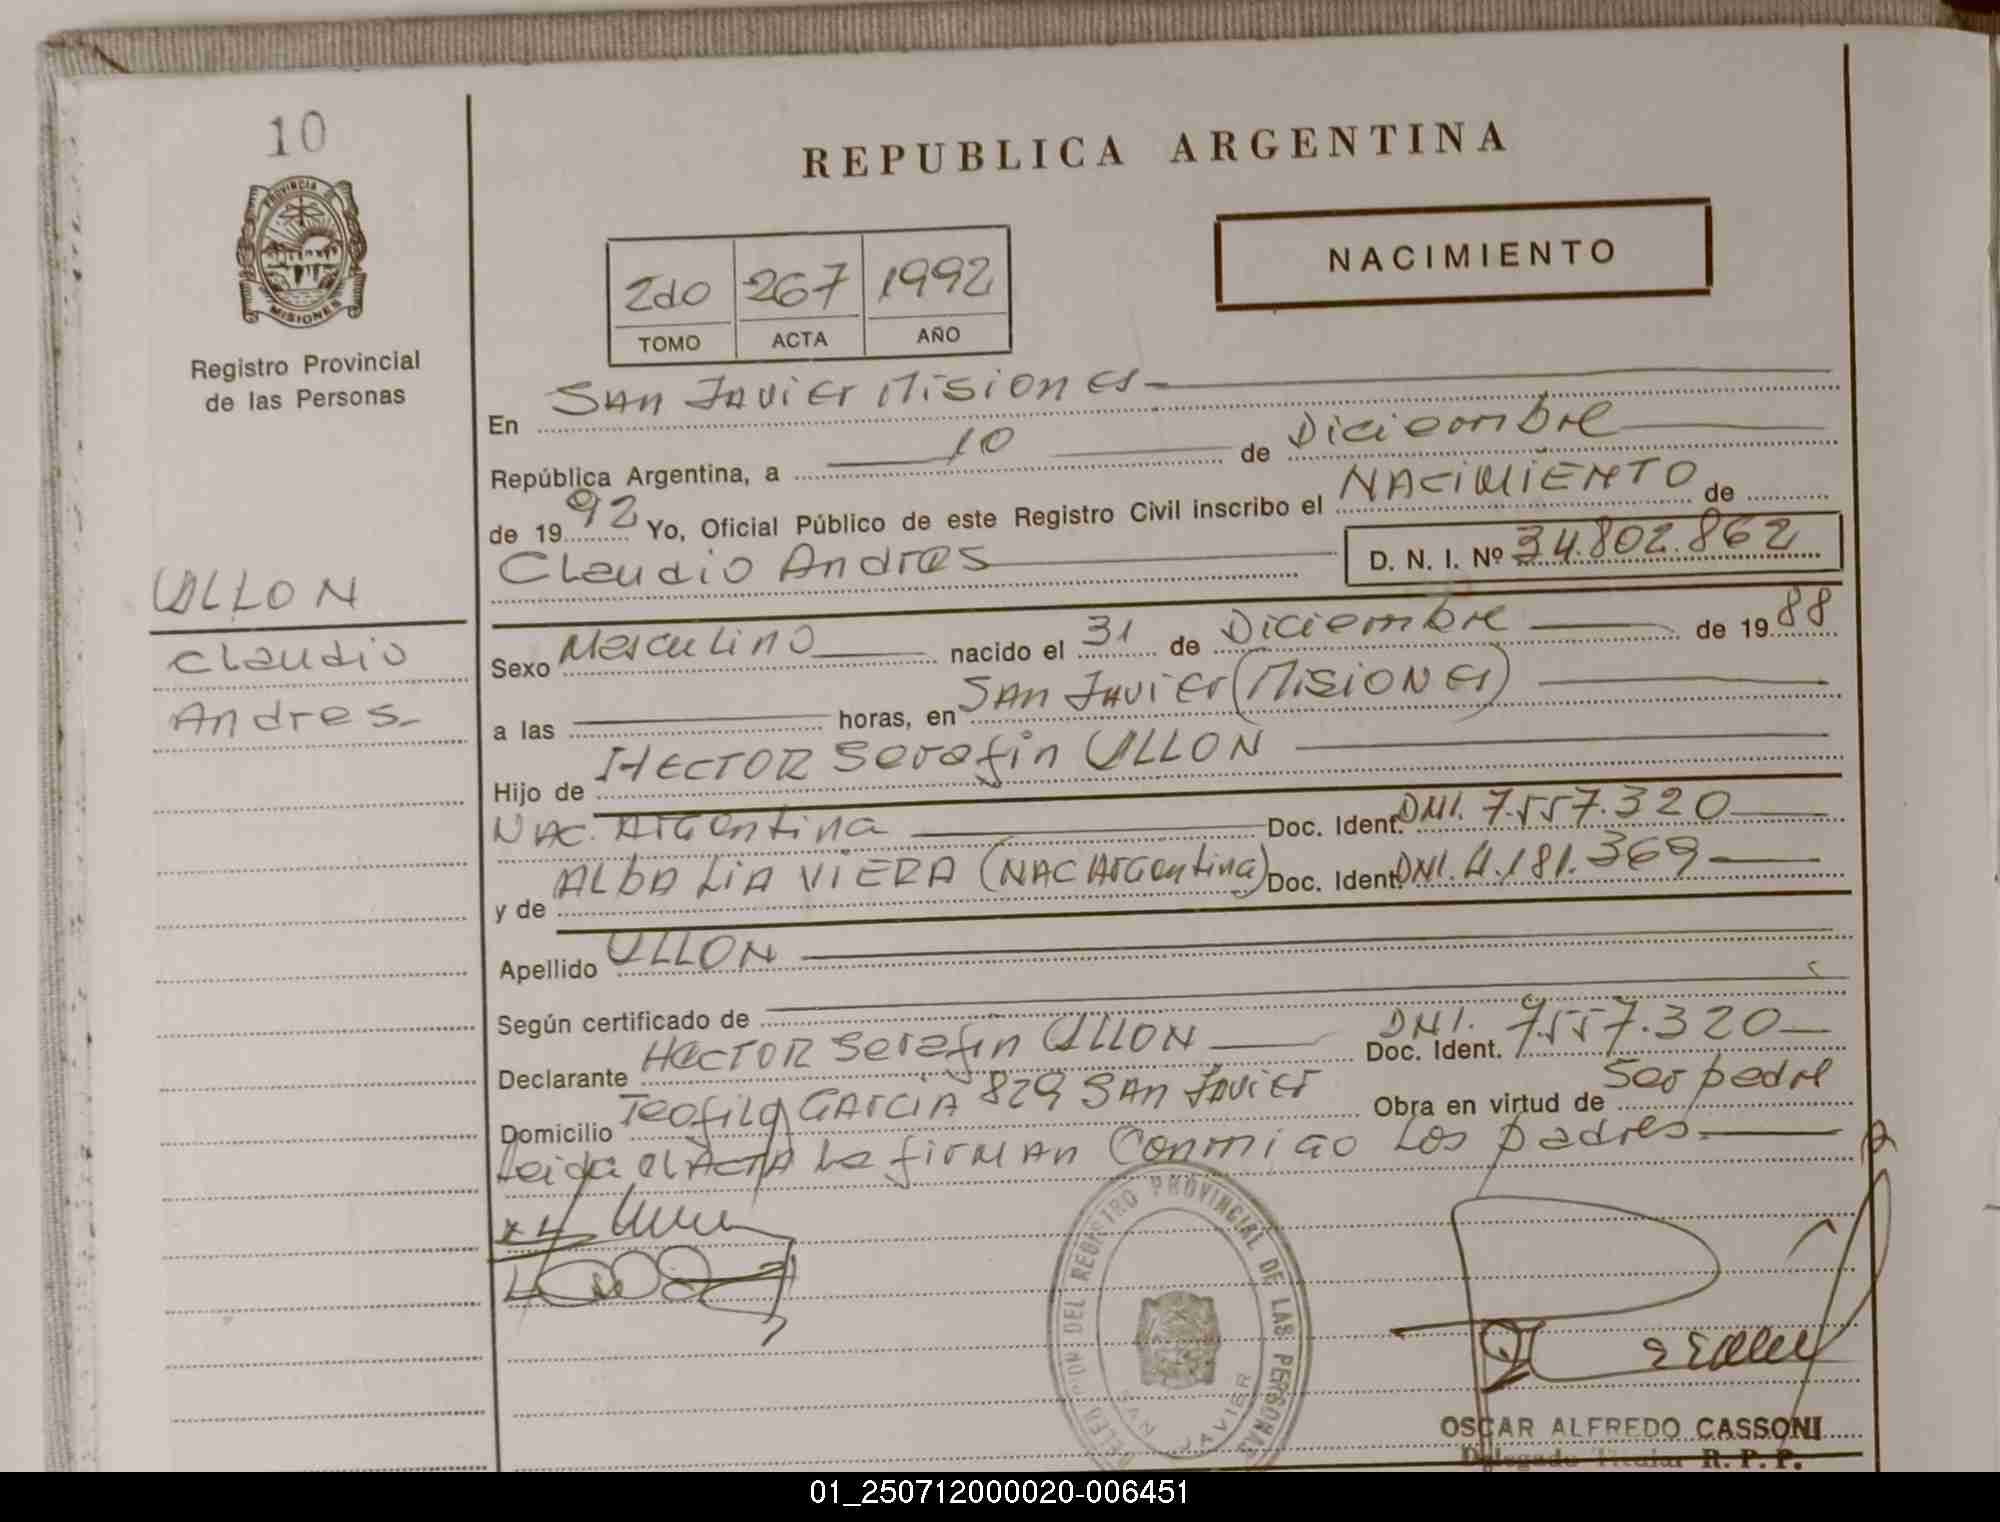 10
PROVINCIA
MISIONES
Registro Provincial
de las Personas
ULLON
Claudio
Andres-
REPUBLICA ARGENTINA
NACIMIENTO
2do 267 1992
TOMO ACTA AÑO
En San Javier Misiones
República Argentina, a 10 de Diciembre
de 1992 Yo, Oficial Público de este Registro Civil inscribo el NACIMIENTO de
Claudio Andres D. N. I. Nº 34.802.862
Sexo Masculino nacido el 31 de Diciembre de 1988
a las horas, en San Javier (Misiones)
Hijo de HECTOR Serafin ULLON
NAC. Argentina Doc. Ident. DNI. 7.557.320
y de ALBA LIA VIERA (NAC Argentina) Doc. Ident. DNI. 4.181.369
Apellido ULLON
Según certificado de
Declarante HECTOR Serafin ULLON Doc. Ident. DNI. 7.557.320
Domicilio Teofilo GARCIA 829 San Javier Obra en virtud de Ser padre
Leida el Acta la firman Conmigo Los padres.
DEL REGISTRO PROVINCIAL DE LAS PERSONAS
JAVIER
OSCAR ALFREDO CASSONI
Delegado Titular R. P. P.
01_250712000020-006451